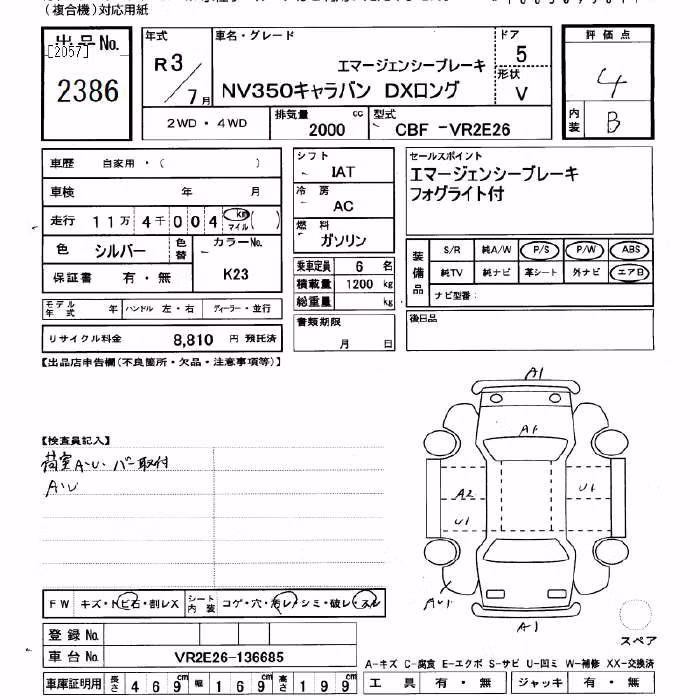 (複合機)対応用紙
出品No.
[2057]
2386
年式
R3/7月
車名・グレード
エマージェンシーブレーキ
NV350キャラバン DXロング
ドア
5
形状
V
評価点
4
内装
B
2WD・4WD
排気量
2000 cc
型式
CBF -VR2E26
車歴 自家用・( )
車検 年 月
走行 11万 4千 004 km マイル ( )
色 シルバー
色替
カラーNo.
K23
保証書 有・無
モデル年式 年
ハンドル 左・右
ディーラー・並行
リサイクル料金 8,810 円 預託済
シフト
IAT
冷房
AC
燃料
ガソリン
乗車定員 6 名
積載量 1200 kg
総重量 kg
書類期限
月 日
セールスポイント
エマージェンシーブレーキ
フォグライト付
装備品
S/R 純A/W P/S P/W ABS
純TV 純ナビ 革シート 外ナビ エアB
ナビ型番:
後日品
【出品店申告欄(不良箇所・欠品・注意事項等)】
【検査員記入】
荷室A・U・バー取付
A・U
A1
A1
A2
U1
U1
AU1
A1
FW キズ・トビ石・割レX
シート内装 コゲ・穴・汚レ・シミ・破レ・スレ
登録No.
車台No. VR2E26-136685
車庫証明用 長さ 469cm 幅 169cm 高さ 199
スペア
A-キズ C-腐食 E-エクボ S-サビ U-凹ミ W-補修 XX-交換済
工具 有・無 ジャッキ 有・無